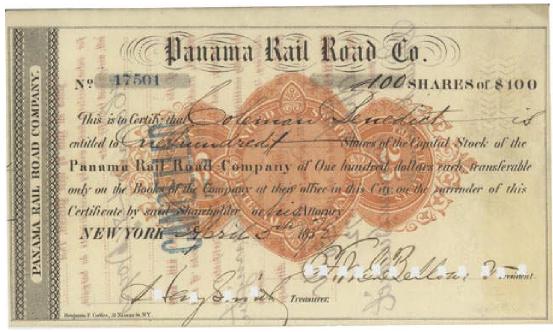 Panama Rail Road Co.
No 17501 100 SHARES of $100
This is to Certify that Coleman Benedict is
entitled to One hundred Shares of the Capital Stock of the
Panama Rail Road Company of One hundred dollars each, transferable
only on the Books of the Company at their office in this City on the surrender of this
Certificate by said Shareholder or his Attorney
NEW YORK April 5th 18
President.
Henry Smith Treasurer.
PANAMA RAIL ROAD COMPANY.
CANCELLED